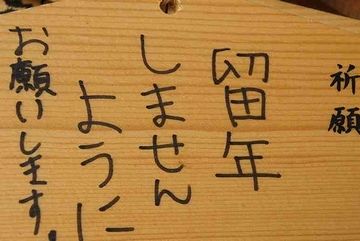 祈願
留年
しません
ように
お願いします。